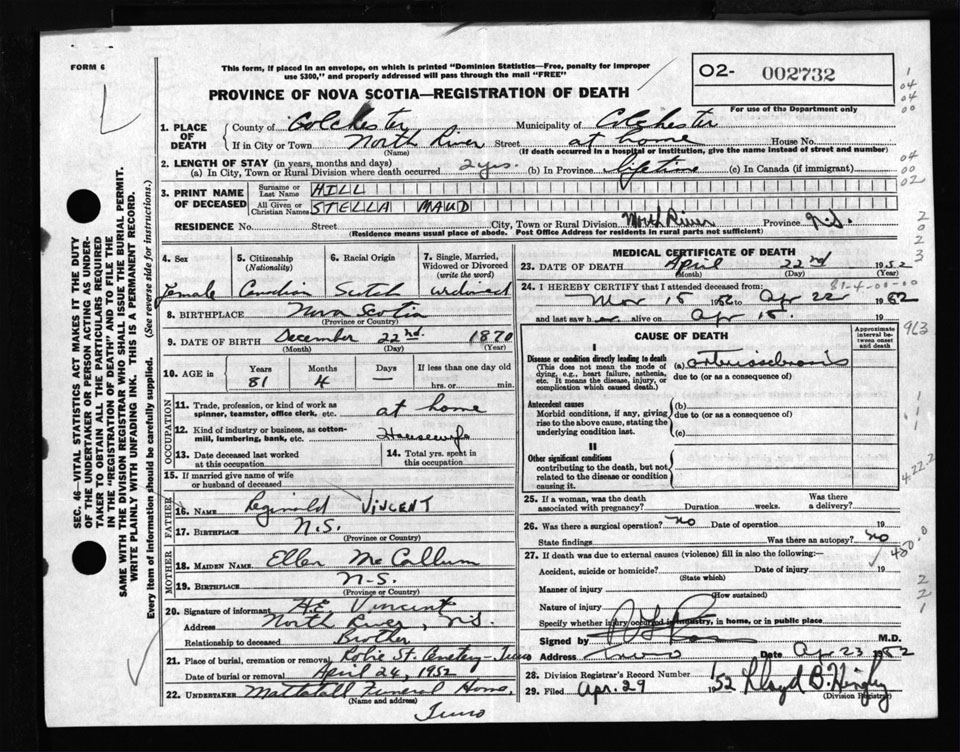 FORM 6
This form, if placed in an envelope, on which is printed "Dominion Statistics—Free, penalty for improper
use $300," and properly addressed will pass through the mail "FREE"
02- 002732
For use of the Department only
PROVINCE OF NOVA SCOTIA—REGISTRATION OF DEATH
1. PLACE OF DEATH
County of Colchester Municipality of Colchester
If in City or Town North River Street at home House No.
(Name) (If death occurred in a hospital or institution, give the name instead of street and number)
2. LENGTH OF STAY (in years, months and days)
(a) In City, Town or Rural Division where death occurred 2 yrs. (b) In Province lifetime (c) In Canada (if immigrant)
3. PRINT NAME OF DECEASED
Surname or Last Name HILL
All Given or Christian Names STELLA MAUD
RESIDENCE No. Street City, Town or Rural Division North River Province N.S.
(Residence means usual place of abode. Post Office Address for residents in rural parts not sufficient)
4. Sex Female
5. Citizenship (Nationality) Canadian
6. Racial Origin Scotch
7. Single, Married, Widowed or Divorced (write the word) widowed
8. BIRTHPLACE Nova Scotia
(Province or Country)
9. DATE OF BIRTH December 22nd. 1870
(Month) (Day) (Year)
10. AGE in Years Months Days If less than one day old
81 4 — hrs. or min.
OCCUPATION
11. Trade, profession, or kind of work as spinner, teamster, office clerk, etc. at home
12. Kind of industry or business, as cotton-mill, lumbering, bank, etc. Housewife
13. Date deceased last worked at this occupation
14. Total yrs. spent in this occupation
15. If married give name of wife or husband of deceased
FATHER
16. NAME Reginald VINCENT
17. BIRTHPLACE N.S.
(Province or Country)
MOTHER
18. MAIDEN NAME Ellen McCallum
19. BIRTHPLACE N-S.
(Province or Country)
20. Signature of informant H.E. Vincent
Address North River, N.S.
Relationship to deceased Brother
21. Place of burial, cremation or removal Robie St. Cemetery - Truro
Date of burial or removal April 24, 1952
22. UNDERTAKER Mattatall Funeral Home,
(Name and address) Truro
MEDICAL CERTIFICATE OF DEATH
23. DATE OF DEATH April 22nd 1952
(Month) (Day) (Year)
81-4-00-00
24. I HEREBY CERTIFY that I attended deceased from:
Mar 15 1952 to Apr 22 1952
and last saw her alive on Apr 18. 19
CAUSE OF DEATH
Approximate interval between onset and death
I
Disease or condition directly leading to death (a) arteriosclerosis
(This does not mean the mode of dying, e.g., heart failure, asthenia, etc. It means the disease, injury, or complication which caused death.)
due to (or as a consequence of)
Antecedent causes
Morbid conditions, if any, giving rise to the above cause, stating the underlying condition last.
(b)
due to (or as a consequence of)
(c)
II
Other significant conditions
contributing to the death, but not related to the disease or condition causing it.
25. If a woman, was the death associated with pregnancy? Duration weeks. Was there a delivery?
26. Was there surgical operation? no Date of operation 19
State findings Was there an autopsy? no
27. If death was due to external causes (violence) fill in also the following:—
Accident, suicide or homicide? Date of injury 19
(State which)
Manner of injury
(How sustained)
Nature of injury
Specify whether injury occurred in industry, in home, or in public place
Signed by M.D.
Address Truro Date Apr 23 1952
28. Division Registrar's Record Number
29. Filed Apr. 29 1952 Lloyd B. Hingley
(Division Registrar)
SEC. 46—VITAL STATISTICS ACT MAKES IT THE DUTY
OF THE UNDERTAKER OR PERSON ACTING AS UNDER-
TAKER TO OBTAIN ALL THE PARTICULARS REQUIRED
IN THE "REGISTRATION OF DEATH" AND TO FILE THE
SAME WITH THE DIVISION REGISTRAR WHO SHALL ISSUE THE BURIAL PERMIT.
WRITE PLAINLY WITH UNFADING INK. THIS IS A PERMANENT RECORD.
Every item of information should be carefully supplied. (See reverse side for instructions.)
1
04
04
00
04
00
02
2
0
2
3
963
1
1
1
422.2
450.0
2
2
1